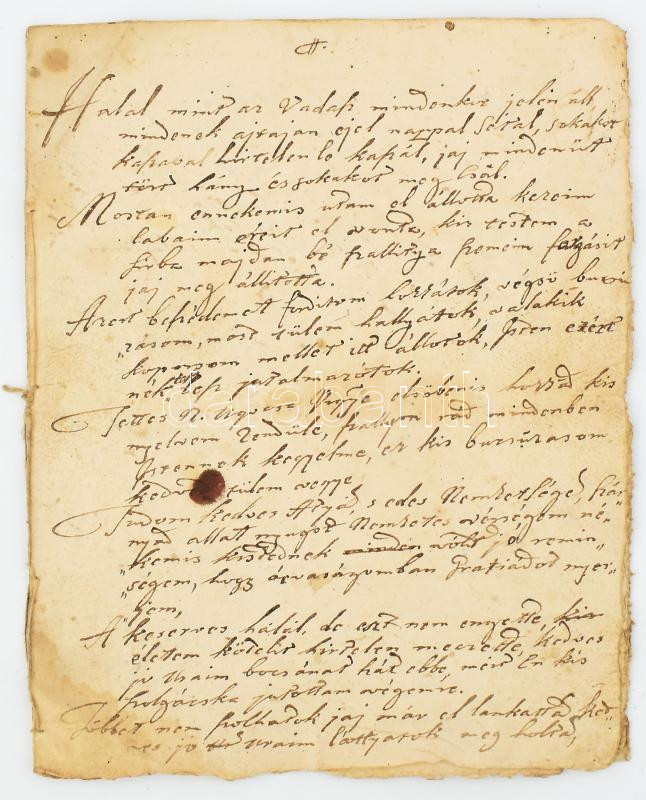 Halal mint az Vadasz mindenkor jelen áll,
mindenek ajtajan ejel nappal sétal, sokakot
kaszaval hirtelen le kaszál, jaj mindenüt
tört hány és sokakot meg
Mostan ennekemis utam el állotta kezeim
labaim ereit el vonta, kis testem a
sirba majdan bé szallitya szemeim
jaj meg állitotta.
Azert beszédemet forditom hozzátok, végső
rásom, most tülem hallgatok, valakik
koporsom mellet itt állotok, Isten ezért
nék tesz jutalmazótok.
Tettes N. Ugocsa elsöbenis hozzád kis
nyelvem rendüle, szallyon rád mindenben
Istennek kegyelme, ez kis bucsúzasom
kedve tülem vegye.
Tudom kedves Atyá s edes Nemzetsége,
nyad allat nyugot Nemzetes vérségem né"
"kemis kistednek minden vólt jo remin"
"ségem, hogy árvaságomban Gratiadot nyer"
"jem,
A keserves halál, de ezt nem engette, kis
életem kötelit hirtelen meczette, kedves
jo Uraim bocsánat ebbe, mert én kis
szolgácska jutottam végemre.
Többet nem szolhatok jaj már el lankattá ked"
ves jo Uraim láttyatok meg holtá,
darabanth